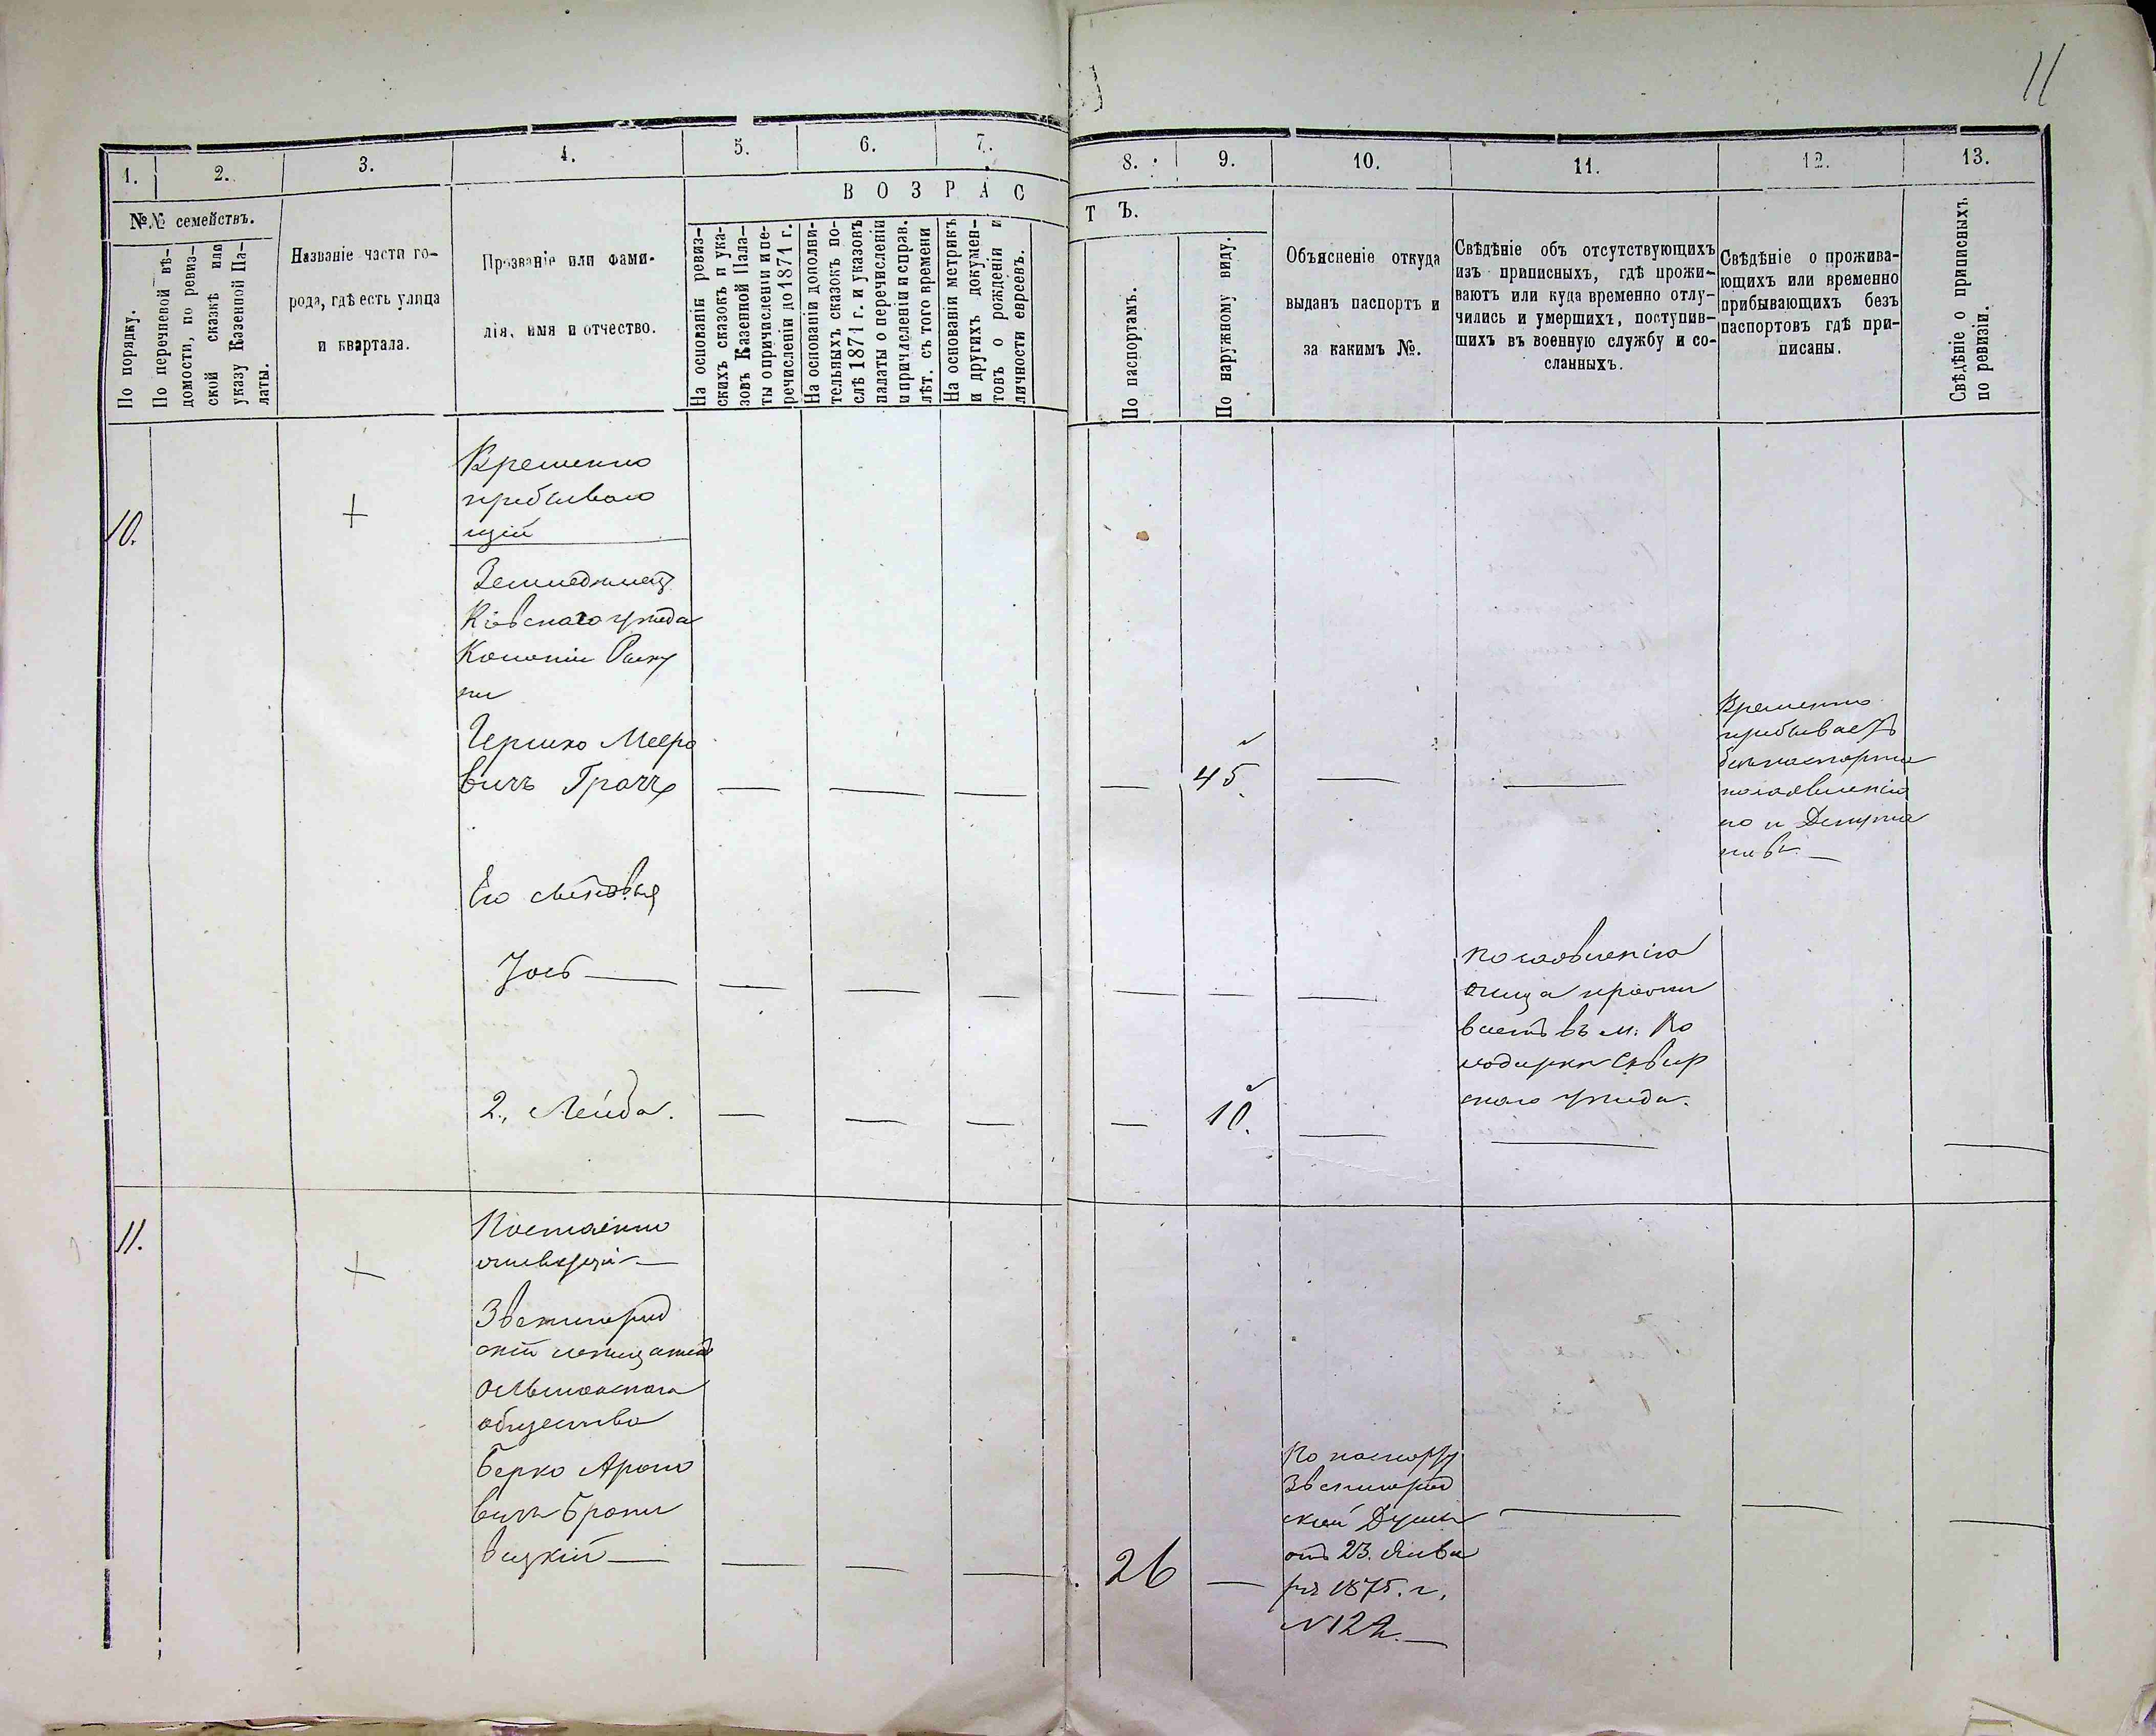 11
1.
2.
3.
4.
5.
6.
7.
8.
9.
10.
11.
12.
13.
№№ семействъ.
По порядку.
По перечневой вѣ-
домости, по ревиз-
ской сказкѣ или
указу Казенной Па-
латы.
Названіе части го-
рода, гдѣ есть улица
и квартала.
Прозваніе или фами-
лія, имя и отчество.
ВОЗРАС
ТЪ.
На основаніи ревиз-
скихъ сказокъ и ука-
зовъ Казенной Пала-
ты о причисленіи и пе-
речисленіи до 1871 г.
На основаніи дополни-
тельныхъ сказокъ по-
слѣ 1871 г. и указовъ
палаты о перечисленіи
и причисленіи и справ.
лѣт. съ того времени
На основаніи метрикъ
и другихъ докумен-
товъ о рожденіи и
личности евреевъ.
По паспортамъ.
По наружному виду.
Объясненіе откуда
выданъ паспортъ и
за какимъ №.
Свѣдѣніе объ отсутствующихъ
изъ приписныхъ, гдѣ прожи-
ваютъ или куда временно отлу-
чились и умершихъ, поступив-
шихъ въ военную службу и со-
сланныхъ.
Свѣдѣніе о прожива-
ющихъ или временно
прибывающихъ безъ
паспортовъ гдѣ при-
писаны.
Свѣдѣніе о приписныхъ
по ревизіи.
10.
+
Временно
пребываю
щій
Земледѣлецъ
Кіевскаго уѣзда
Колоніи
Гершко Мееро
вичъ Грачъ
45.
Временно
пребываетъ
безъ паспорта
по заявленію
его и Депута
товъ
Его сыновья
Іосъ
По заявленію
отца прожи
ваетъ въ м. Во
лодаркѣ Сквир
скаго уѣзда.
2., Лейба.
10.
11.
+
Постоянно
живущій
Звенигород
скій мѣщанинъ
Ольшанскаго
общества
Берко Ароно
вичъ Брони
вицкій
26
По паспорту
Звенигород
ской Думы
отъ 23. Янва
ря 1875. г.